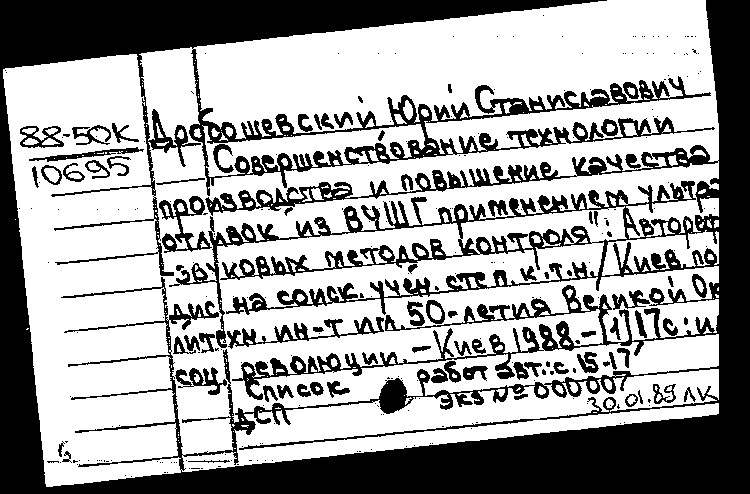 88-50К
10695
Дробошевский Юрий Станиславович
Совершенствование технологии
производства и повышение качества
отливок из ВЧШГ применением ультра
-звуковых методов контроля": Автореф
дис. на соиск. учён. степ. к.т.н./Киев. по
литехн. ин-т им. 50-летия Великой Ок
соц. революции. –Киев, 1988.–[1]17с: ил
Список работ авт.: с. 15-17
ДСП Экз № 000007
30.01.89 ЛК